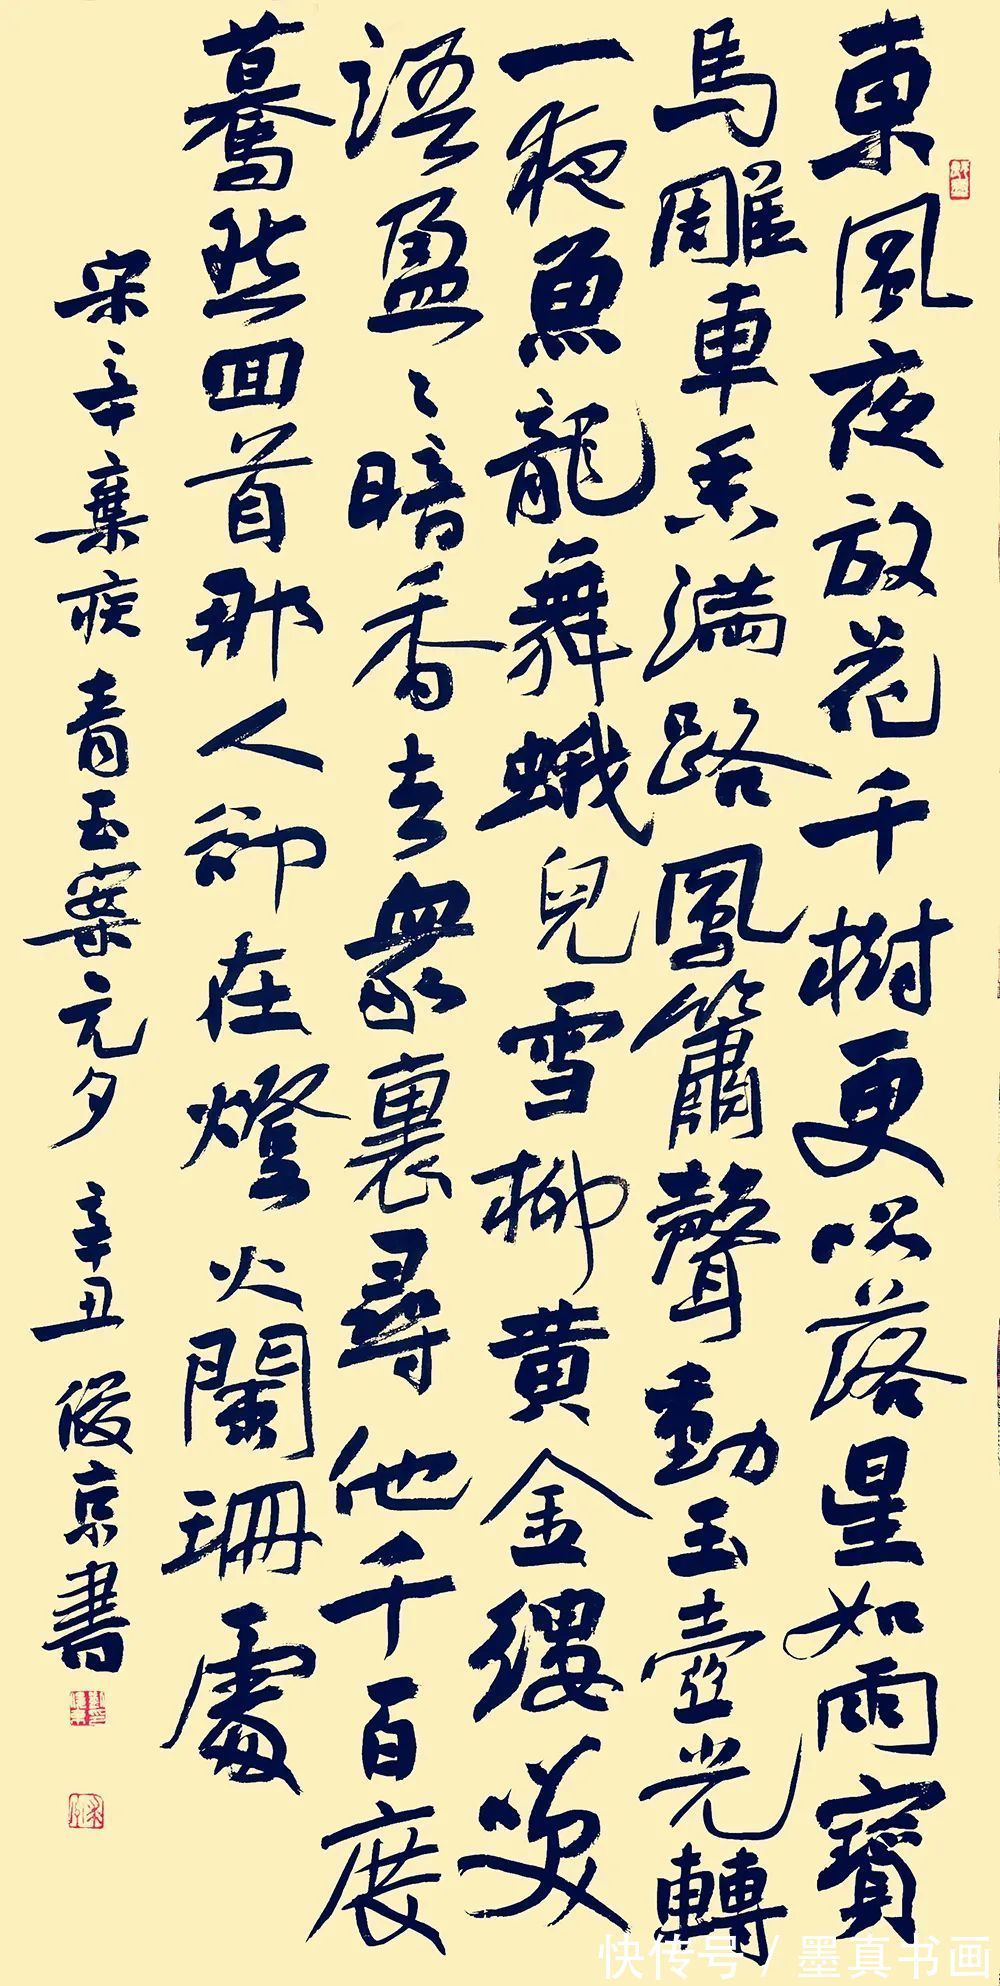 東風夜放花千樹更吹落星如雨寶
馬雕車香滿路鳳簫聲動玉壺光轉
一夜魚龍舞蛾兒雪柳黄金縷笑
語盈〻暗香去衆裏尋他千百度
驀然回首那人卻在燈火闌珊處
宋辛棄疾青玉案元夕 辛丑 俊京書
快传号 / 墨真书画